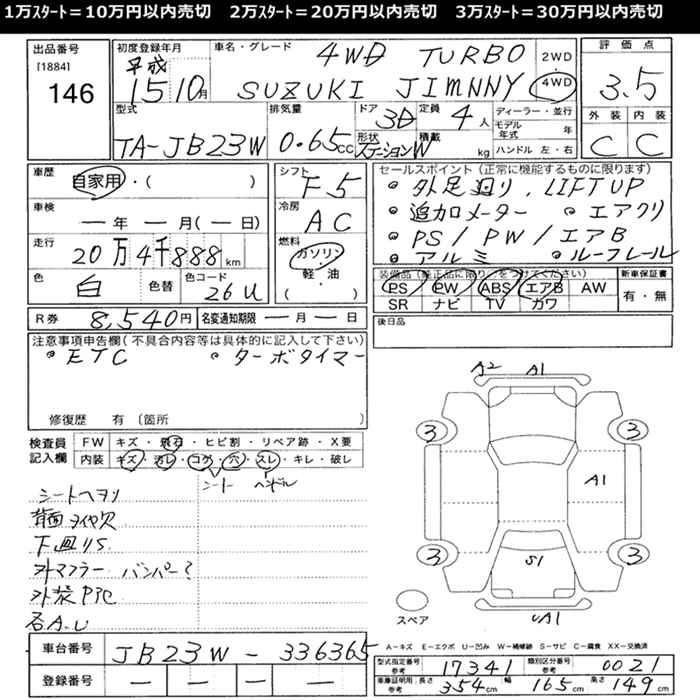 1万スタート=10万円以内売切 2万スタート=20万円以内売切 3万スタート=30万円以内売切
出品番号
[1884]
146
初度登録年月
平成
15 10月
車名・グレード
4WD TURBO
SUZUKI JIMNNY
2WD
4WD
評価点
3.5
外装 内装
C C
型式
TA-JB23W
排気量
0.65cc
ドア
3D
定員
4人
形状
ステーションW
積載
kg
ディーラー・並行
モデル年式 年
ハンドル 左・右
車歴
自家用・( )
車検
ー年 ー月(ー日)
走行
20万4千888km
色
白
色替
色コード
26U
シフト
F5
冷房
AC
燃料
ガソリン
軽・油
( )
セールスポイント(正常に機能するものに限ります)
・外足廻り、LIFTUP
・追加メーター ・エアクリ
・PS/PW/エアB
・アルミ ・ルーフレール
装備品(純正品に限り○をつけてください)
PS PW ABS エアB AW
SR ナビ TV カワ
新車保証書
有・無
R券 8,540円
名変通知期限 ー月ー日
後日品
注意事項申告欄(不具合内容等は具体的に記入して下さい)
・ETC ・ターボタイマー
修復歴 有 〔箇所
検査員記入欄
FW キズ・飛石・ヒビ割・リペア跡・X要
内装 キズ・汚レ・コゲ・穴・スレ・キレ・破レ
シート ハンドル
シートヘタリ
背面タイヤ欠
下廻りS
外マフラー バンパー?
外装
各A.U
A2 A1
3 3
A1
3 3
S1
UA1
スペア
A-キズ E-エクボ U-凹み W-補修跡 S-サビ C-腐食 XX-交換済
車台番号 JB23W-336365
登録番号 ー ー ー ー
型式指定番号 参考 17341
類別区分番号 参考 0021
車庫証明用 参考 長さ 354cm 幅 165cm 高さ 149cm